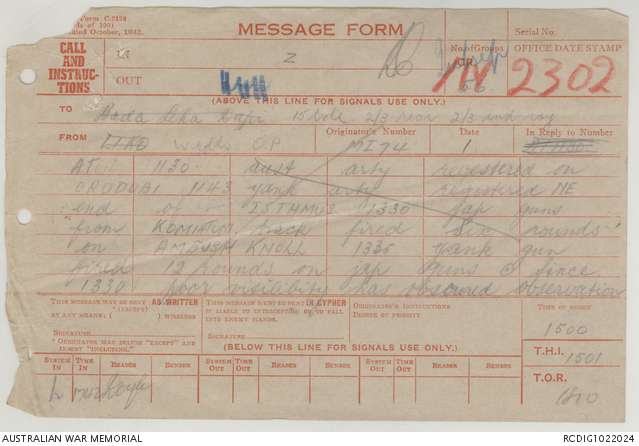 Form C.2128
(Pads of 100)
October, 1942.
MESSAGE FORM
Serial No.
CALL
AND
INSTRUC-
TIONS
IN
Z
No. of Groups
GR.
66
OFFICE DATE STAMP
IV 2302
OUT
(ABOVE THIS LINE FOR SIGNALS USE ONLY.)
TO
15 Bde 2/3
2/3 ind coy
FROM
O.P
Originator's Number
MI 74
Date
1
In Reply to Number
AT 1130 aust arty registered on
ORODUBI 1143 yank arty registered NE
end of ISTHMUS 1330 jap guns
from KOMIATUM track fired six rounds
on AMBUSH KNOLL 1335 yank gun
fired 12 rounds on jap guns since
1330 poor visibility has obscured observation
This message may be sent AS WRITTEN
(EXCEPT)
by any means. ( ) WIRELESS
Signature
* Originator may delete "EXCEPT" and
insert "INCLUDING."
This message must be sent IN CYPHER
if liable to interception or to fall
into enemy hands.
Signature
Originator's Instructions
Degree of Priority
Time of Origin
1500
(BELOW THIS LINE FOR SIGNALS USE ONLY.)
T.H.I. 1501
System In Time In Reader Sender System Out Time Out Reader Sender System Out Time Out Reader Sender
T.O.R.
AUSTRALIAN WAR MEMORIAL
RCDIG1022024